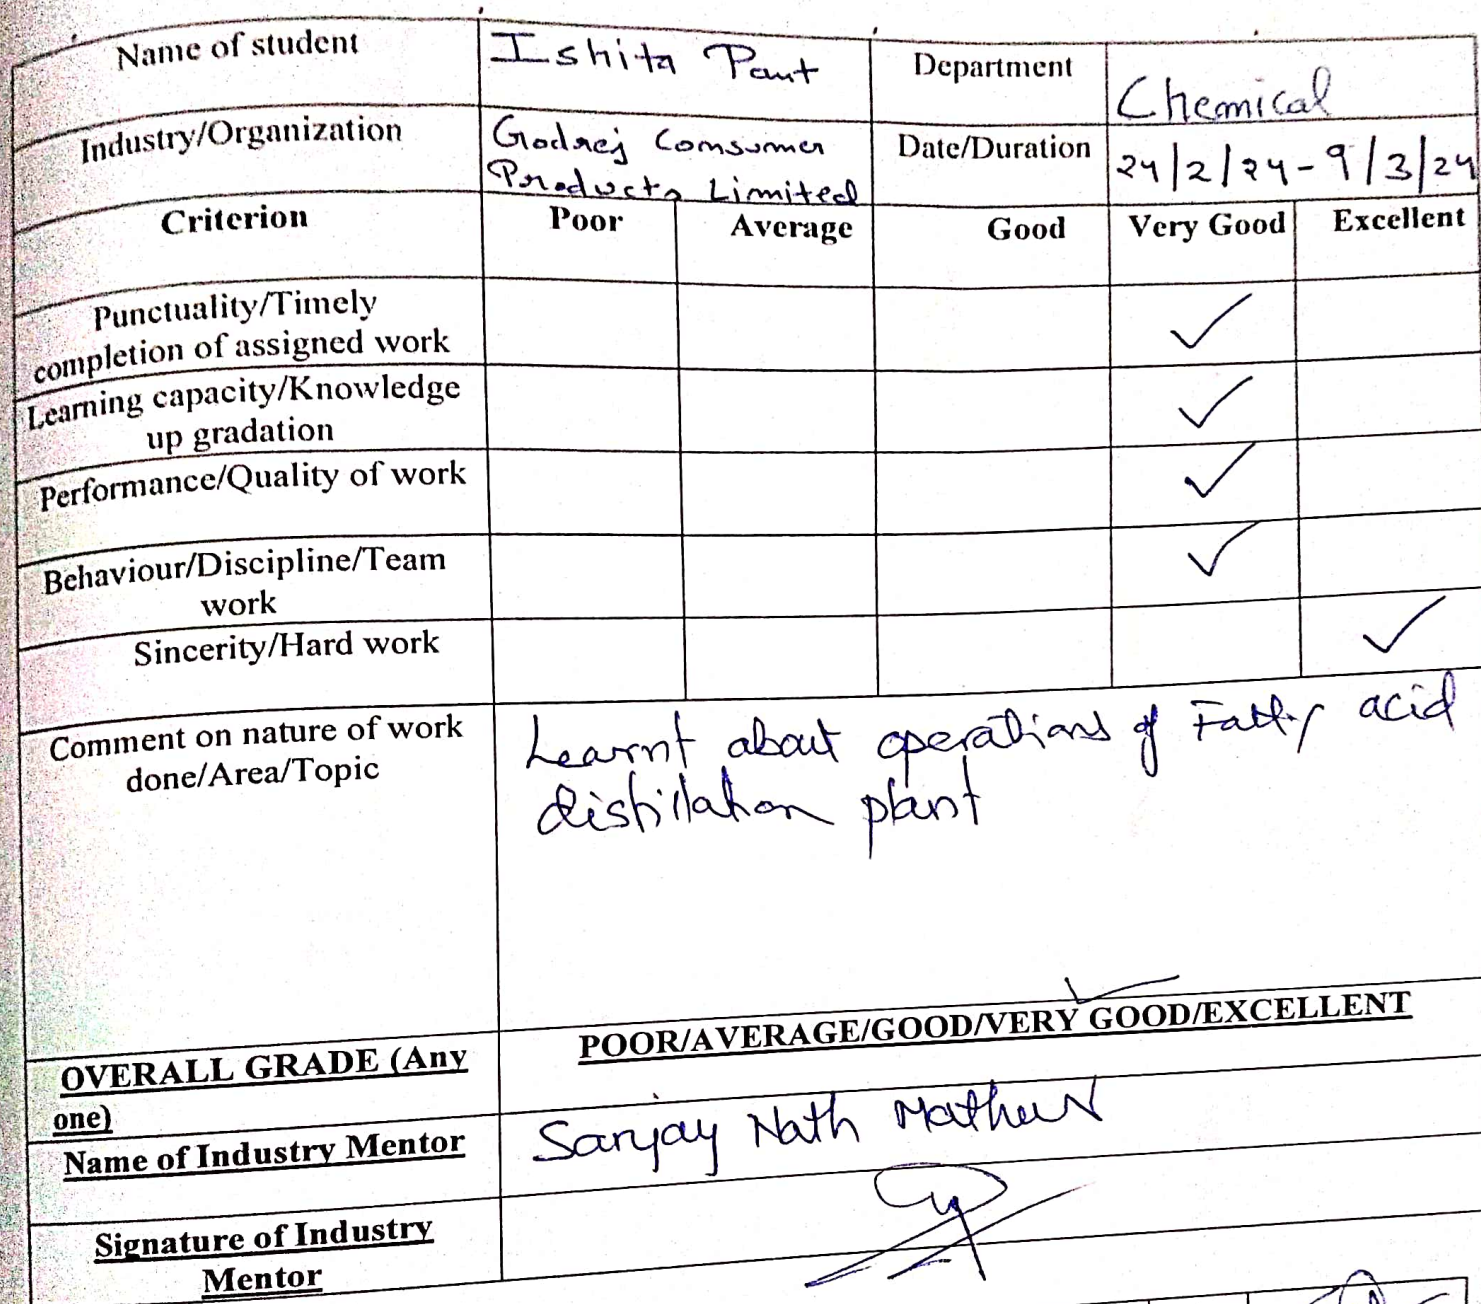 Name of student Ishita Pant Department Chemical
Industry/Organization Godrej Consumer Products Limited Date/Duration 24/2/24-9/3/24
Criterion Poor Average Good Very Good Excellent
Punctuality/Timely
completion of assigned work ✓
Learning capacity/Knowledge
up gradation ✓
Performance/Quality of work ✓
Behaviour/Discipline/Team
work ✓
Sincerity/Hard work ✓
Comment on nature of work
done/Area/Topic
Learnt about operations of Fatty acid
distillation plant
OVERALL GRADE (Any
one)
POOR/AVERAGE/GOOD/VERY GOOD/EXCELLENT
Name of Industry Mentor Sanjay Nath Mathur
Signature of Industry
Mentor